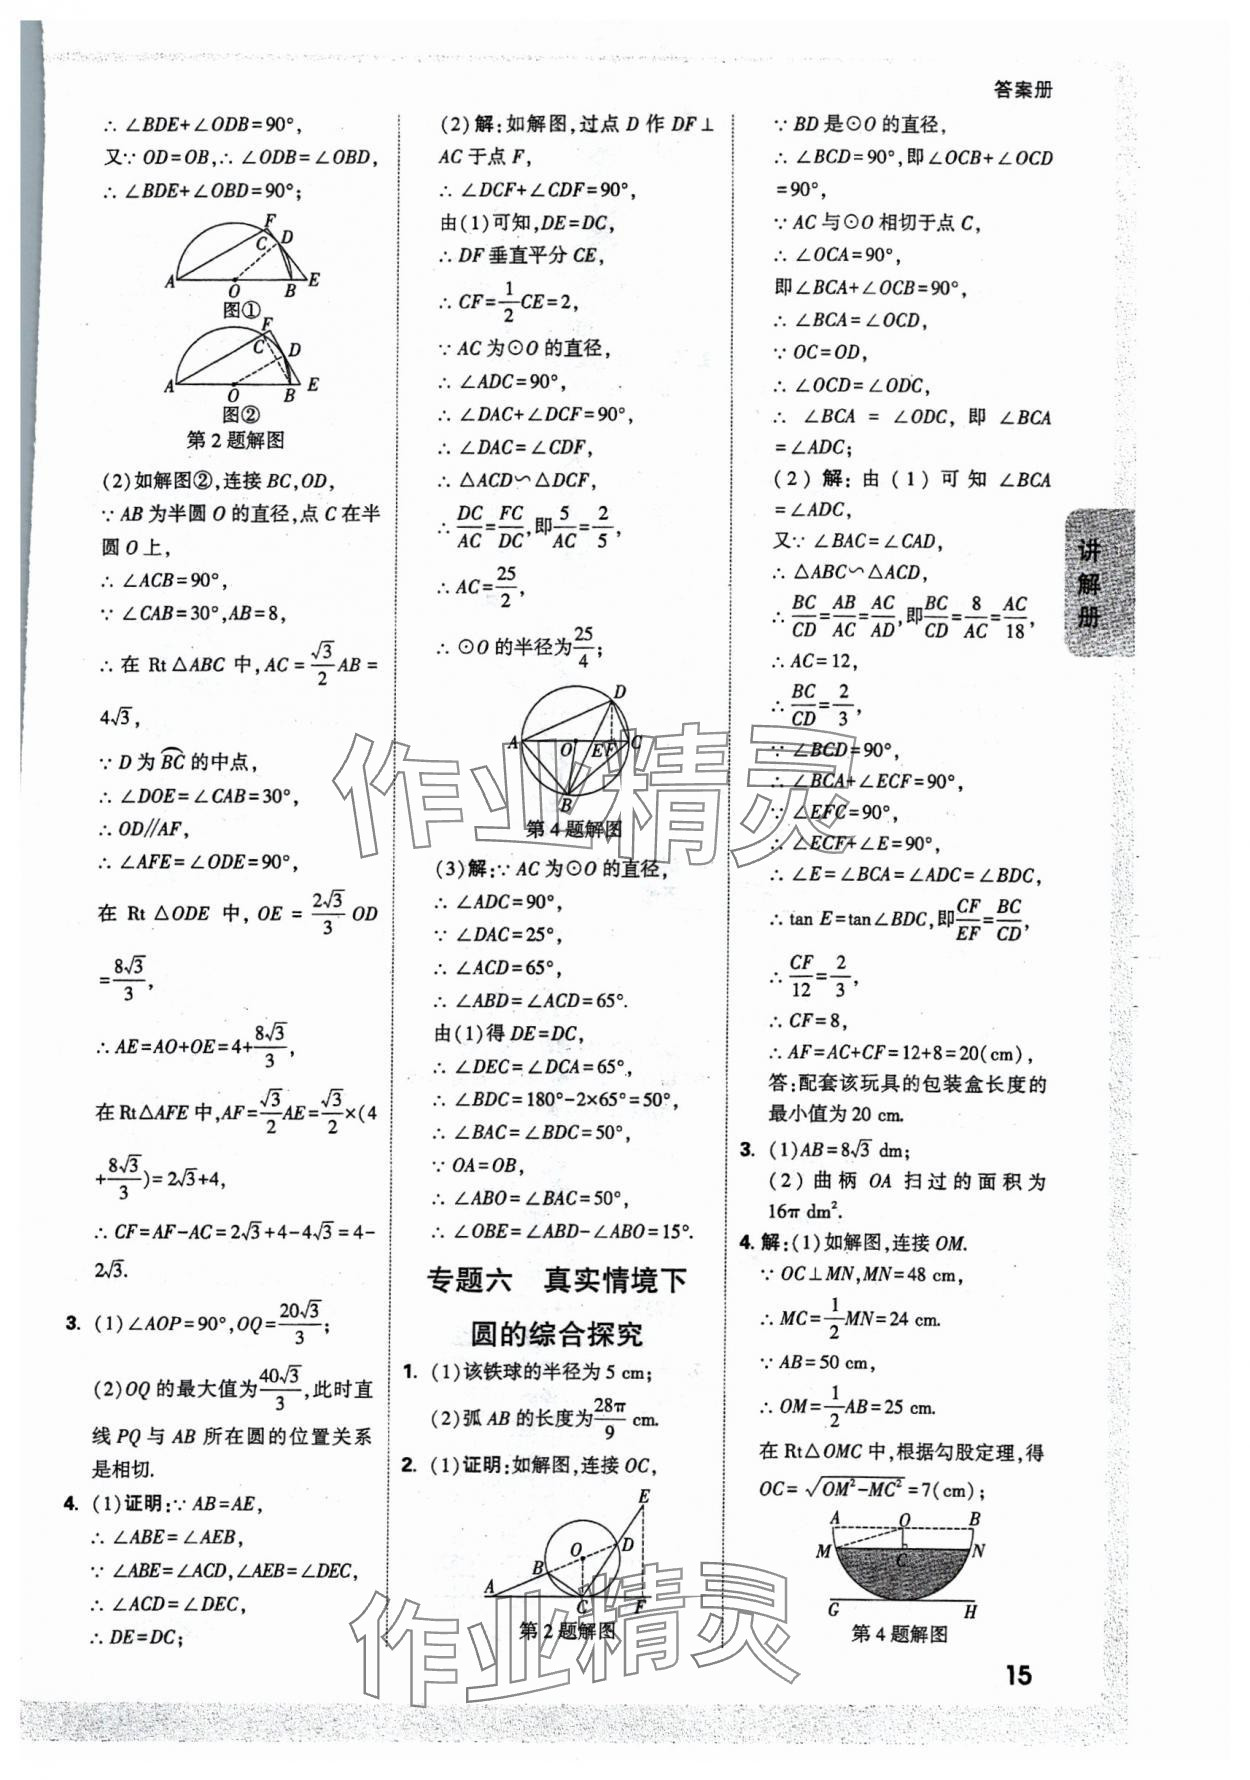 答案册
∴ ∠BDE+∠ODB=90°,
又∵ OD=OB,∴ ∠ODB=∠OBD,
∴ ∠BDE+∠OBD=90°;
F
C D
A O B E
图①
F
C D
A O B E
图②
第2题解图
(2)如解图②,连接BC,OD,
∵ AB为半圆O的直径,点C在半
圆O上,
∴ ∠ACB=90°,
∵ ∠CAB=30°,AB=8,
∴ 在 Rt△ABC 中,AC=√3/2 AB=
4√3,
∵ D为⌒BC的中点,
∴ ∠DOE=∠CAB=30°,
∴ OD//AF,
∴ ∠AFE=∠ODE=90°,
在 Rt△ODE 中, OE = 2√3/3 OD
=8√3/3,
∴ AE=AO+OE=4+8√3/3,
在Rt△AFE中,AF=√3/2 AE=√3/2×(4
+8√3/3)=2√3+4,
∴ CF=AF-AC=2√3+4-4√3=4-
2√3.
3. (1)∠AOP=90°,OQ=20√3/3;
(2)OQ的最大值为40√3/3,此时直
线PQ与AB所在圆的位置关系
是相切.
4. (1)证明:∵ AB=AE,
∴ ∠ABE=∠AEB,
∵ ∠ABE=∠ACD,∠AEB=∠DEC,
∴ ∠ACD=∠DEC,
∴ DE=DC;
(2)解:如解图,过点D作DF⊥
AC于点F,
∴ ∠DCF+∠CDF=90°,
由(1)可知,DE=DC,
∴ DF垂直平分CE,
∴ CF=1/2 CE=2,
∵ AC为⊙O的直径,
∴ ∠ADC=90°,
∴ ∠DAC+∠DCF=90°,
∴ ∠DAC=∠CDF,
∴ △ACD∽△DCF,
∴ DC/AC=FC/DC,即5/AC=2/5,
∴ AC=25/2,
∴ ⊙O的半径为25/4;
D
A O E F C
B
第4题解图
(3)解:∵ AC为⊙O的直径,
∴ ∠ADC=90°,
∵ ∠DAC=25°,
∴ ∠ACD=65°,
∴ ∠ABD=∠ACD=65°.
由(1)得DE=DC,
∴ ∠DEC=∠DCA=65°,
∴ ∠BDC=180°-2×65°=50°,
∴ ∠BAC=∠BDC=50°,
∵ OA=OB,
∴ ∠ABO=∠BAC=50°,
∴ ∠OBE=∠ABD-∠ABO=15°.
专题六 真实情境下
圆的综合探究
1. (1)该铁球的半径为5 cm;
(2)弧AB的长度为28π/9 cm.
2. (1)证明:如解图,连接OC,
E
O D
B
A C F
第2题解图
∵ BD是⊙O的直径,
∴ ∠BCD=90°,即∠OCB+∠OCD
=90°,
∵ AC与⊙O相切于点C,
∴ ∠OCA=90°,
即∠BCA+∠OCB=90°,
∴ ∠BCA=∠OCD,
∵ OC=OD,
∴ ∠OCD=∠ODC,
∴ ∠BCA = ∠ODC, 即 ∠BCA
=∠ADC;
(2) 解: 由 (1) 可知 ∠BCA
=∠ADC,
又∵ ∠BAC=∠CAD,
∴ △ABC∽△ACD,
∴ BC/CD=AB/AC=AC/AD,即BC/CD=8/AC=AC/18,
∴ AC=12,
∴ BC/CD=2/3,
∵ ∠BCD=90°,
∴ ∠BCA+∠ECF=90°,
∵ ∠EFC=90°,
∴ ∠ECF+∠E=90°,
∴ ∠E=∠BCA=∠ADC=∠BDC,
∴ tan E=tan∠BDC,即CF/EF=BC/CD,
∴ CF/12=2/3,
∴ CF=8,
∴ AF=AC+CF=12+8=20(cm),
答:配套该玩具的包装盒长度的
最小值为20 cm.
3. (1)AB=8√3 dm;
(2) 曲柄 OA 扫过的面积为
16π dm².
4. 解:(1)如解图,连接OM.
∵ OC⊥MN,MN=48 cm,
∴ MC=1/2 MN=24 cm.
∵ AB=50 cm,
∴ OM=1/2 AB=25 cm.
在Rt△OMC中,根据勾股定理,得
OC=√(OM²-MC²)=7(cm);
A O B
M C N
G H
第4题解图
讲解册
15
作业精灵
作业精灵